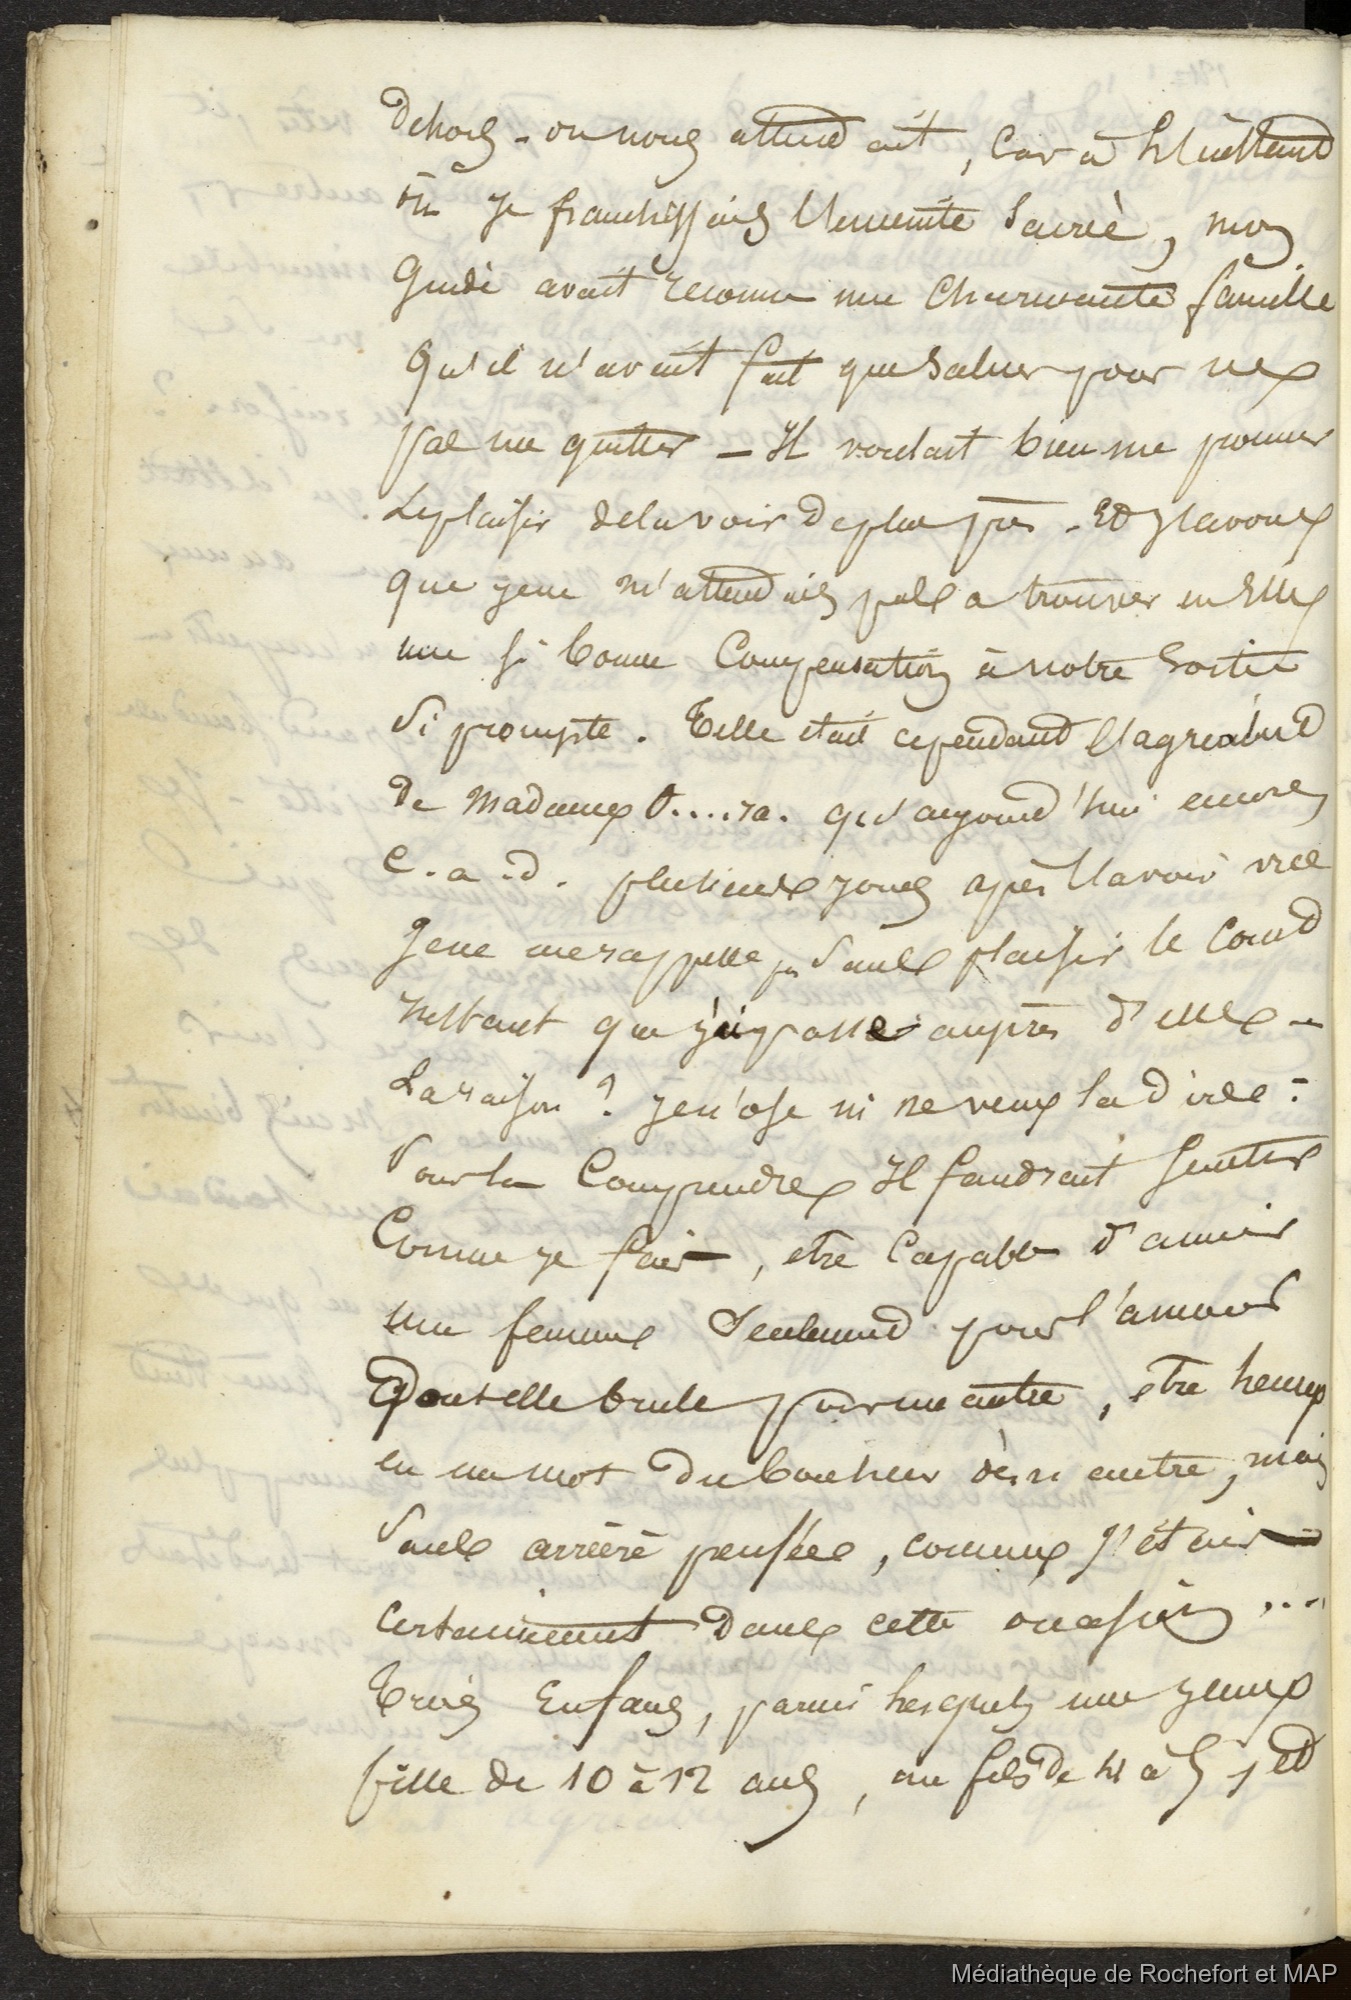 dehors - on nous attend ait, Car à L'instant
où je franchissais L'enceinte Sacrée, mon
guide avait reconnu une Charmante famille
qu'il n'avait fait que Saluer pour ne
pas me quitter - Il voulait bien me donner
Le plaisir de la voir de plus près - Et J'avoue
que je ne m'attendais pas a trouver en Elle
une si bonne Compensation à notre Sortie
Si prompte. Telle était cependant l'agrément
de Madame O....ra. qu'aujourd'hui encore
C. a. d. plusieurs jours après l'avoir vue
je ne me rappelle pas Sans plaisir le Court
Instant que j'ai passé auprès d'elle -
La raison ? je n'ose ni ne veux la dire :
Pour la Comprendre Il faudrait Sentir
Comme je fais, etre Capable d'aimer
une femme Seulement pour l'amour
dont elle brule pour un autre, etre heureux
en un mot du bonheur d'un autre, mais
Sans arrière pensée, comme J'étais
certainement Dans cette occasion ...
Trois Enfans, parmi lesquels une jeune
fille de 10 à 12 ans, un fils de 4 à 5, et
Médiathèque de Rochefort et MAP